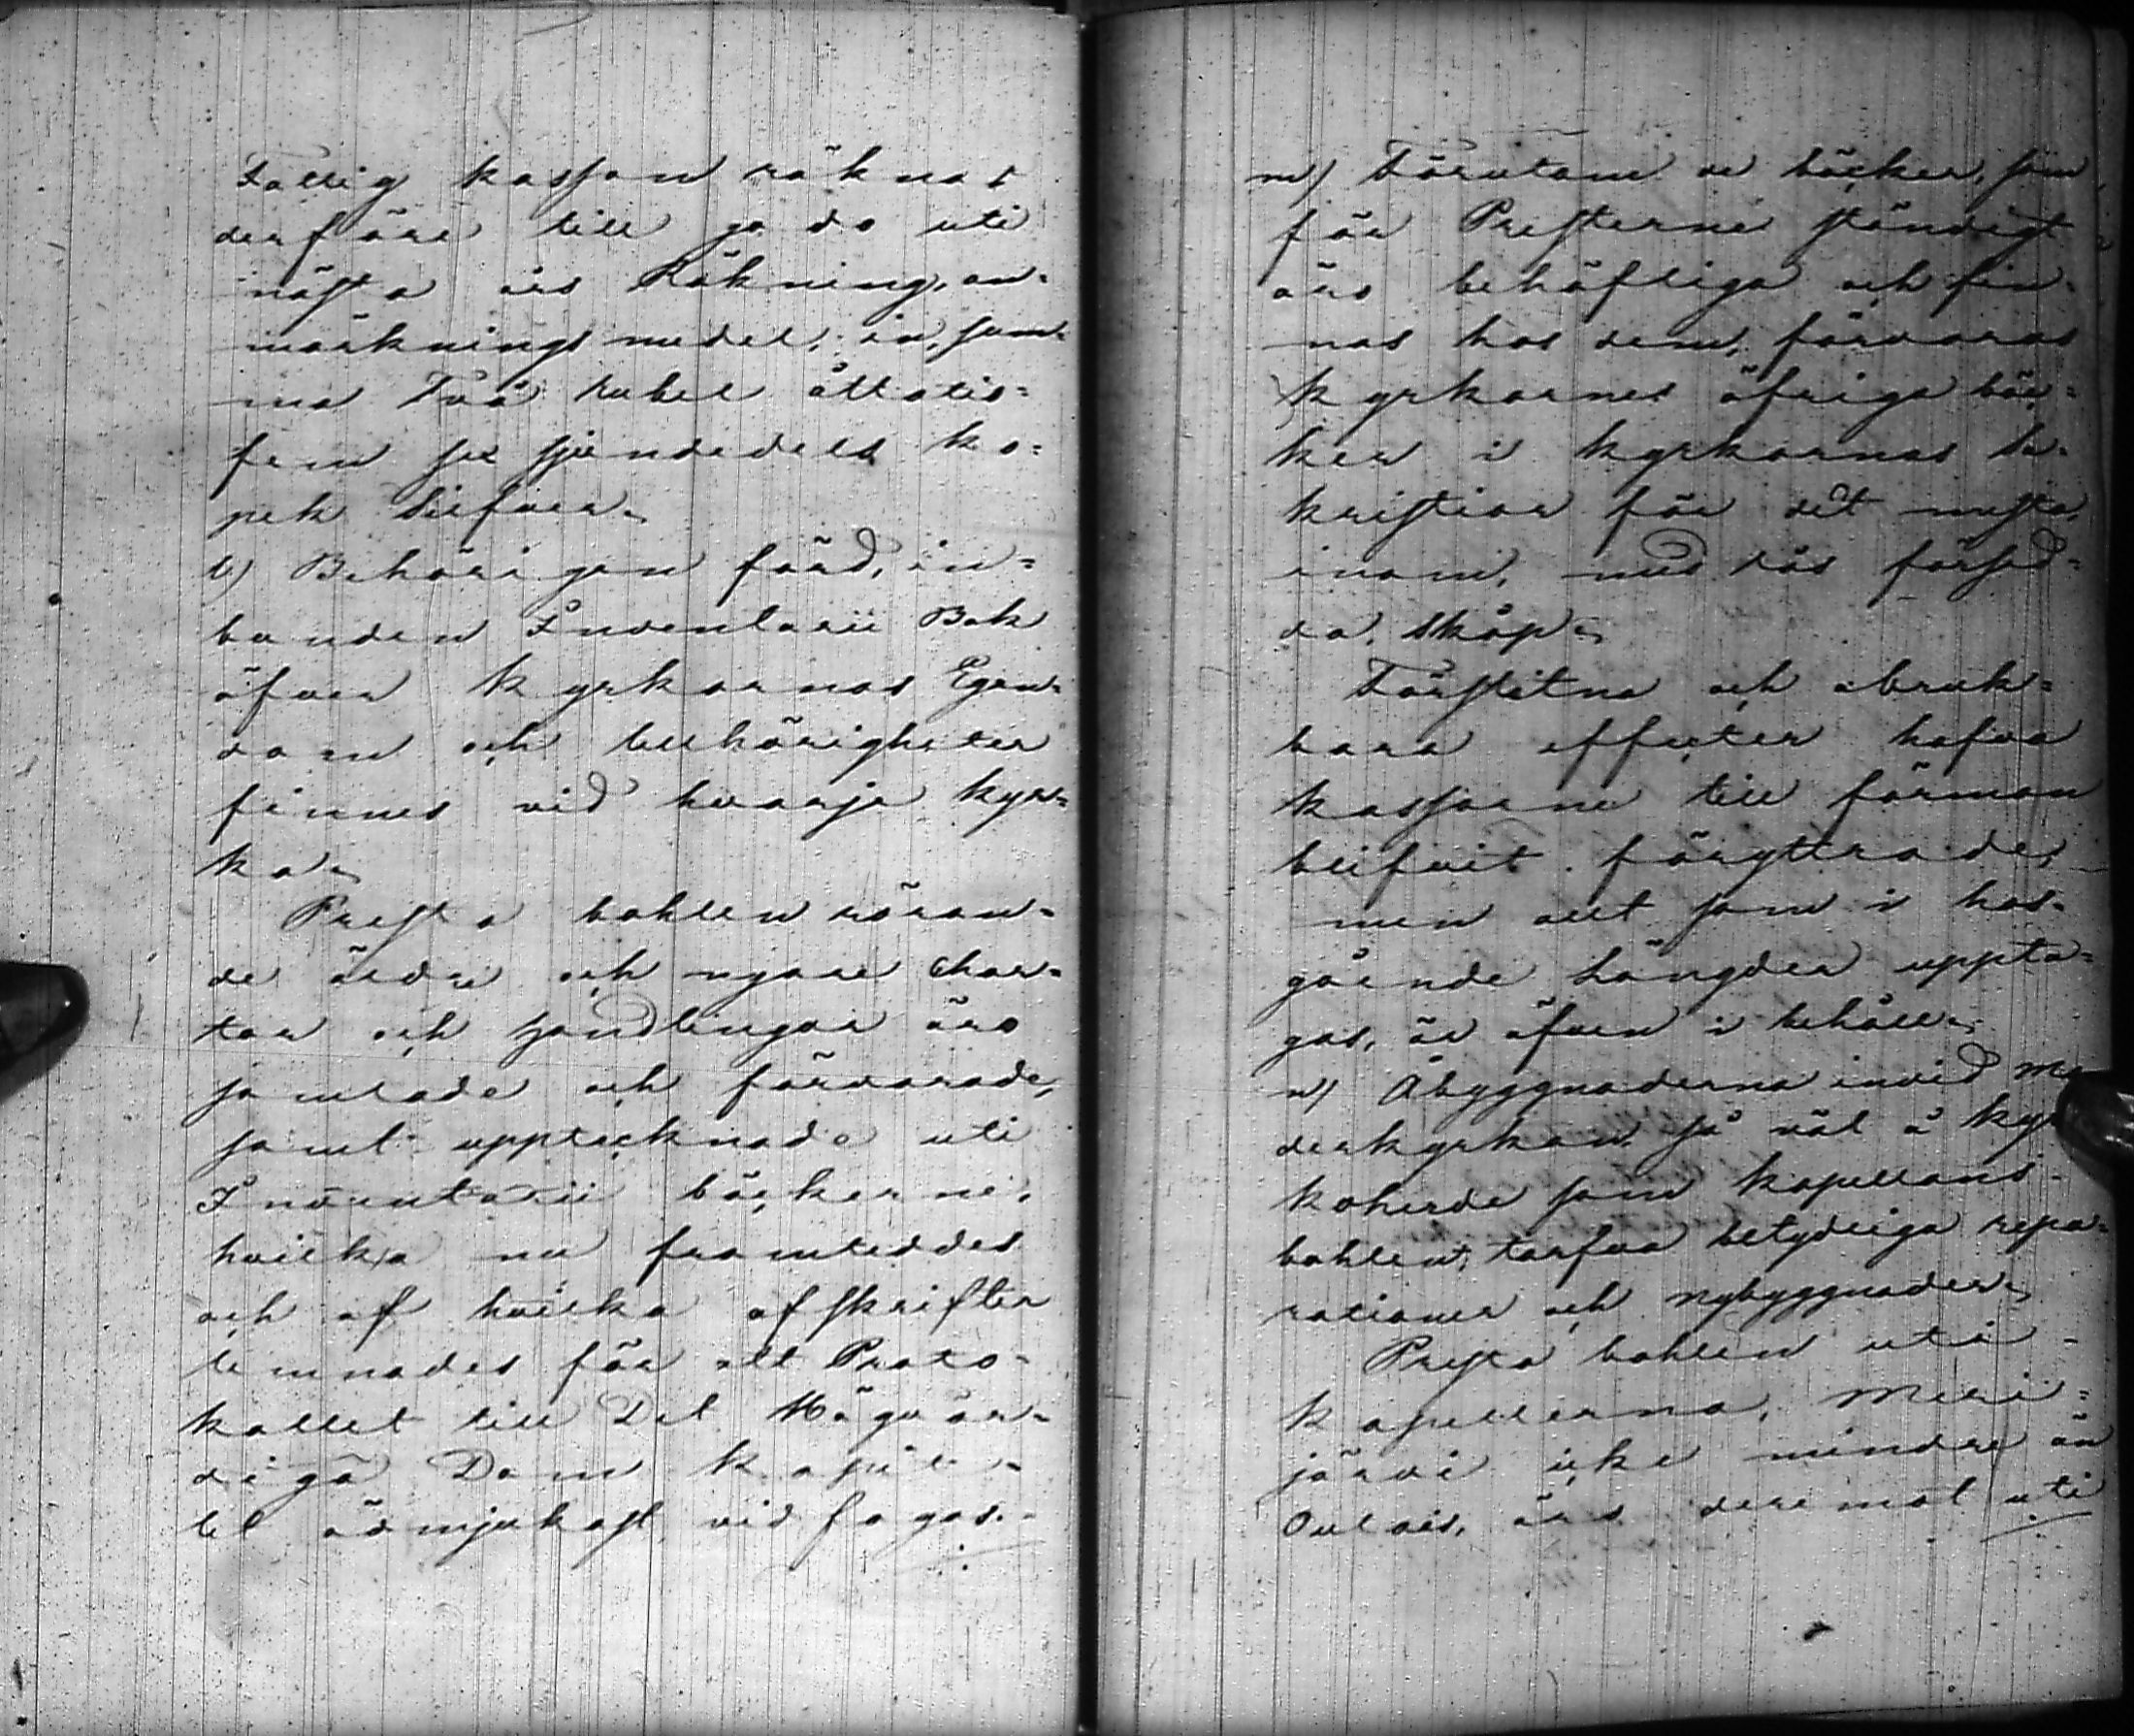 Fattig kassan räknas
derföre till godo uti
nästa års Räkning, an-
märkningsmedel, in sum-
ma Två rubel åttatio-
fem sex sjundedels ko-
pek Silfver.
l) Behörigen förd, in-
bunden Inventarii Bok
öfver kyrkornas Egen-
dom och tillhörigheter
finnes vid hvarje kyr-
ka.
Presta bohlen röran-
de äldre och nyare char-
tor och handlingar äro
samlade och förvarade,
samt upptecknade uti
Inventarii böckerne,
hvilka nu framteddes
och af hvilka afskrifter
lemnades för att Proto-
kollet till Det Högvör-
diga Dom kapit-
tel ödmjukast vidfogas.
m) Förutom de böcker, som
för Presterne ständigt
äro behöfliga och fin-
nas hos dem, förvaras
kyrkornes öfriga böc-
ker i kyrkornas Sa-
kristior för det mesta,
inom, med lås försed-
da, skåp.
Förslitna och obruk-
bara effecter hafva
kassorne till förmon
blifvit föryttrade,
men allt som i hos-
gående längder uppta-
gas, är äfven i behåll.
n) Åbyggnaderna invid Mo
derkyrkan så väl å kyr
koherde som kapellans-
bohlen, tarfva betydliga repa-
rationer och nybyggnader.
Presta bohlen uti
kapellerna, Meri-
järvi icke mindre än
Oulais, äro deremot uti